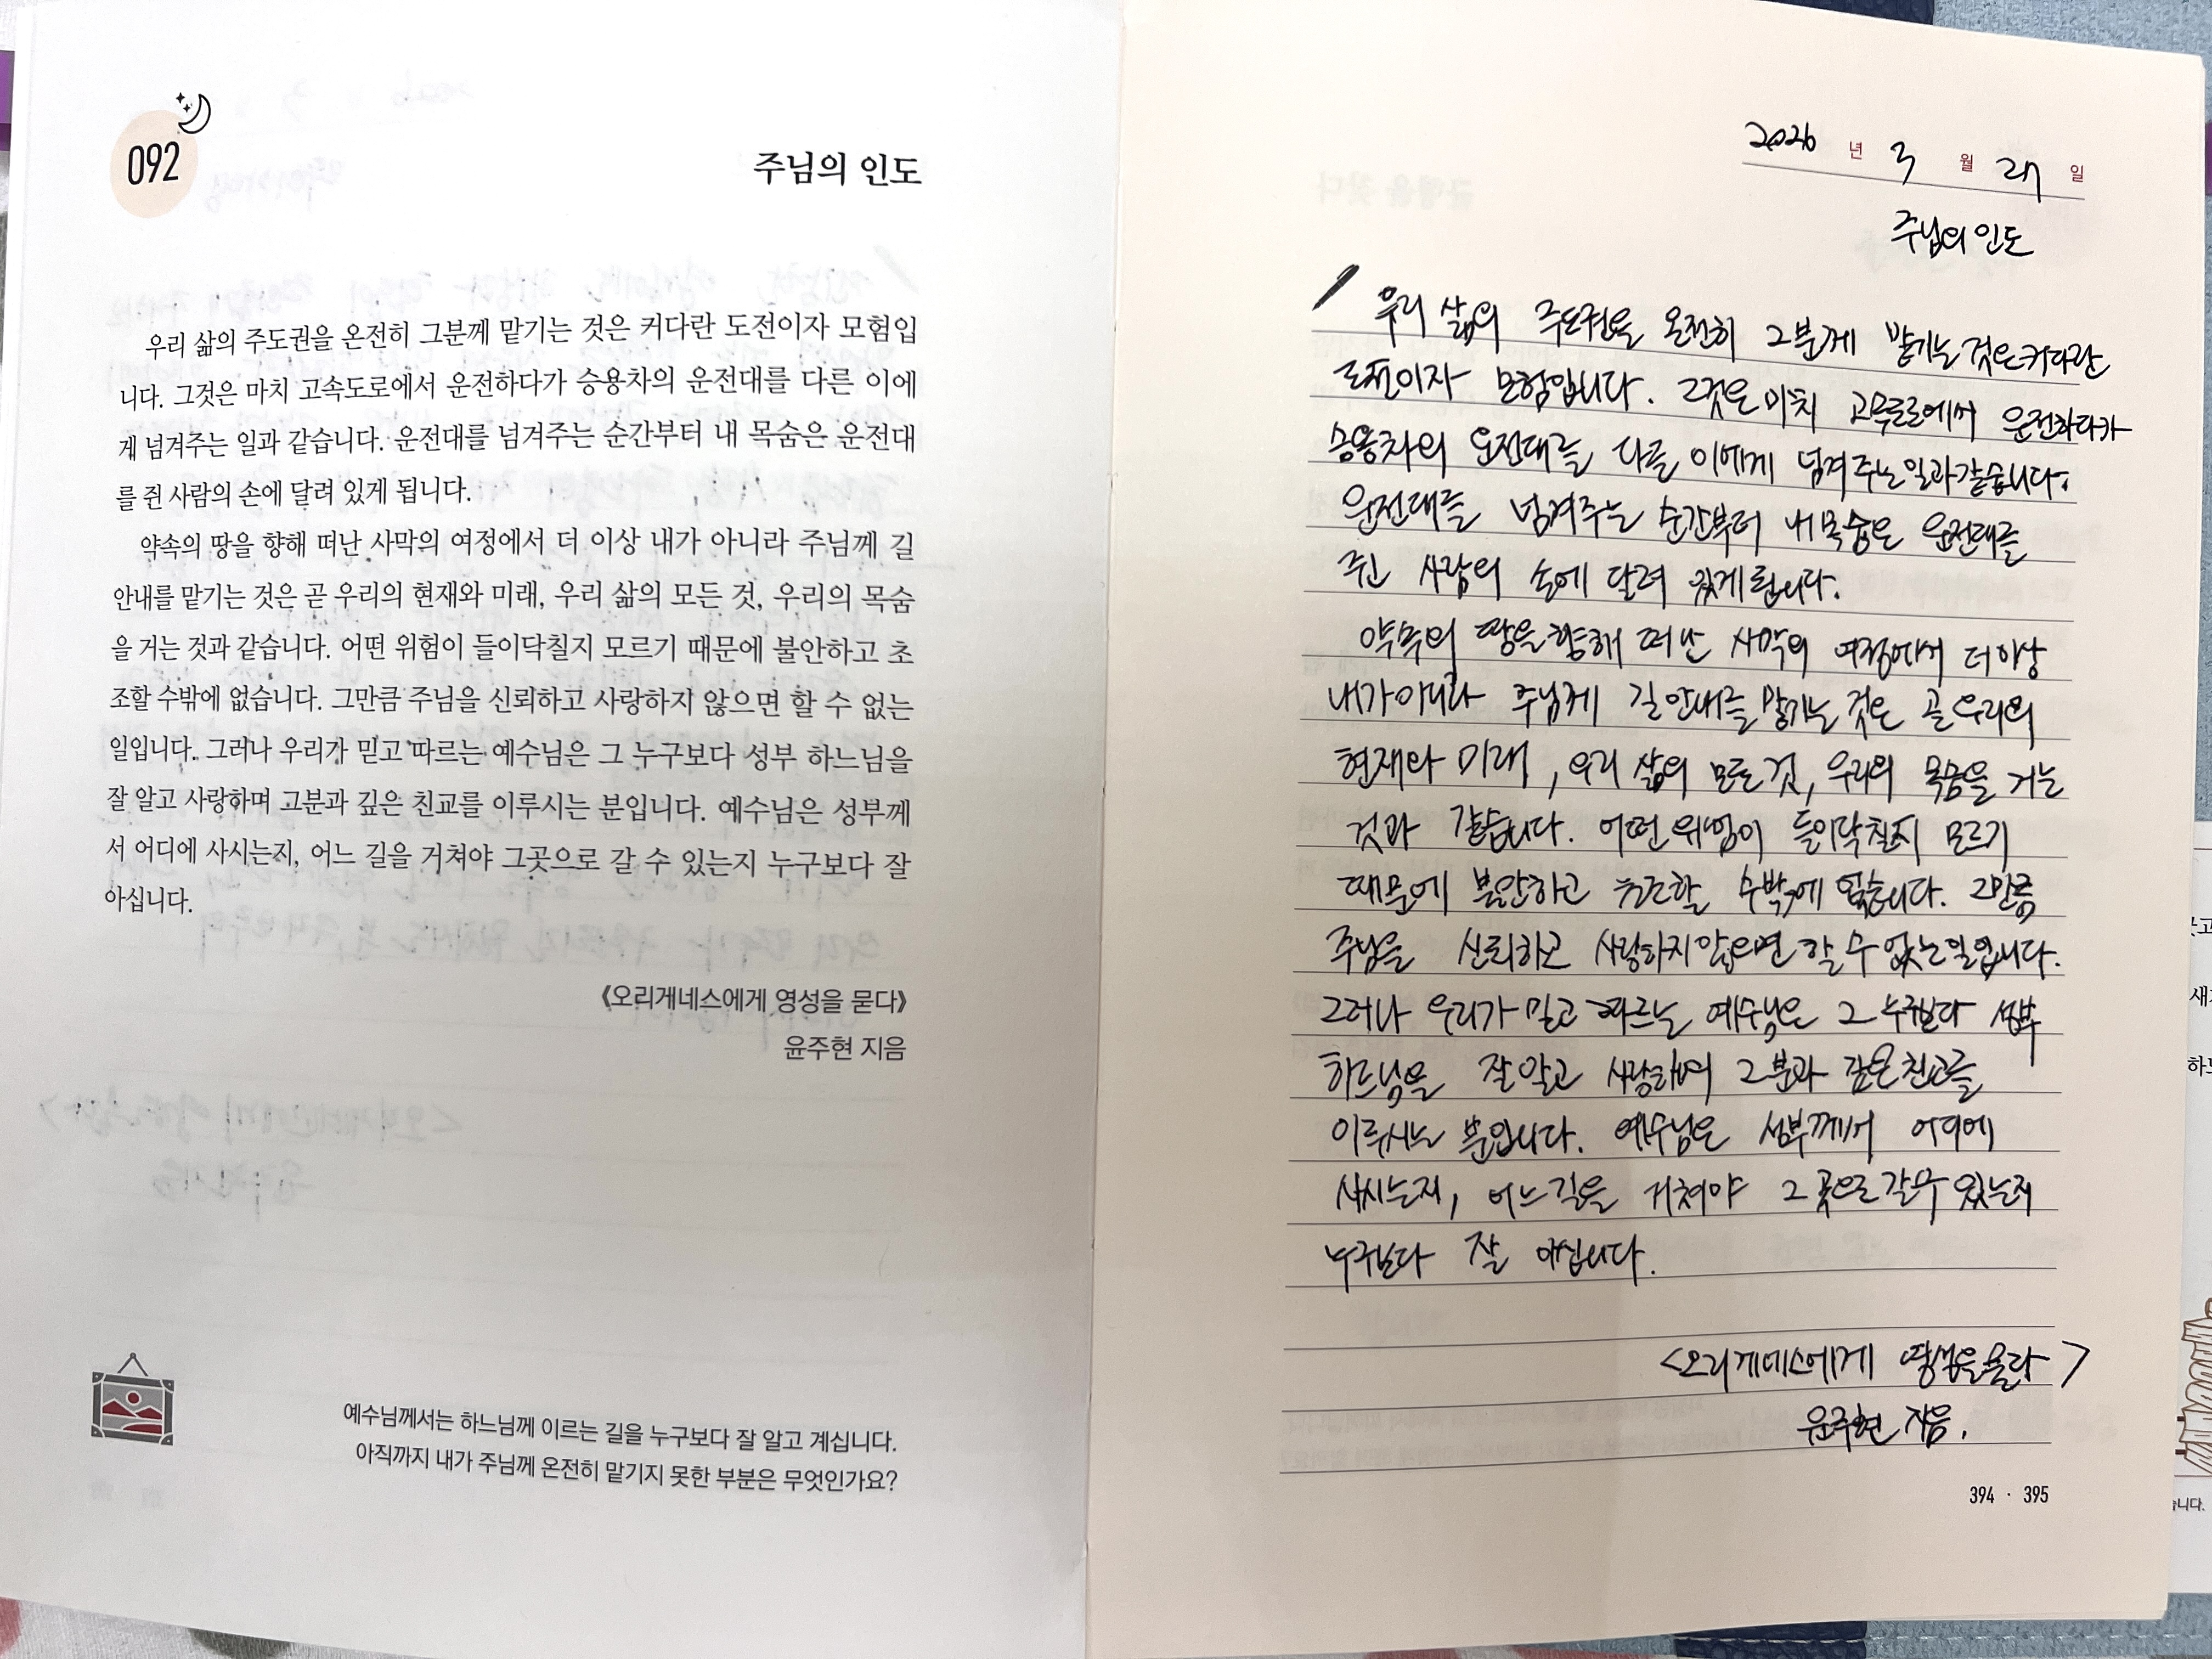 092
주님의 인도
우리 삶의 주도권을 온전히 그분께 맡기는 것은 커다란 도전이자 모험입
니다. 그것은 마치 고속도로에서 운전하다가 승용차의 운전대를 다른 이에
게 넘겨주는 일과 같습니다. 운전대를 넘겨주는 순간부터 내 목숨은 운전대
를 쥔 사람의 손에 달려 있게 됩니다.
약속의 땅을 향해 떠난 사막의 여정에서 더 이상 내가 아니라 주님께 길
안내를 맡기는 것은 곧 우리의 현재와 미래, 우리 삶의 모든 것, 우리의 목숨
을 거는 것과 같습니다. 어떤 위험이 들이닥칠지 모르기 때문에 불안하고 초
조할 수밖에 없습니다. 그만큼 주님을 신뢰하고 사랑하지 않으면 할 수 없는
일입니다. 그러나 우리가 믿고 따르는 예수님은 그 누구보다 성부 하느님을
잘 알고 사랑하며 그분과 깊은 친교를 이루시는 분입니다. 예수님은 성부께
서 어디에 사시는지, 어느 길을 거쳐야 그곳으로 갈 수 있는지 누구보다 잘
아십니다.
《오리게네스에게 영성을 묻다》
윤주현 지음
예수님께서는 하느님께 이르는 길을 누구보다 잘 알고 계십니다.
아직까지 내가 주님께 온전히 맡기지 못한 부분은 무엇인가요?
2026 년 3 월 27 일
주님의 인도
우리 삶의 주도권을 온전히 그분께 맡기는 것은 커다란
도전이자 모험입니다. 그것은 마치 고속도로에서 운전하다가
승용차의 운전대를 다른 이에게 넘겨주는 일과 같습니다.
운전대를 넘겨주는 순간부터 내 목숨은 운전대를
쥔 사람의 손에 달려 있게 됩니다.
약속의 땅을 향해 떠난 사막의 여정에서 더 이상
내가 아니라 주님께 길 안내를 맡기는 것은 곧 우리의
현재와 미래, 우리 삶의 모든 것, 우리의 목숨을 거는
것과 같습니다. 어떤 위험이 들이닥칠지 모르기
때문에 불안하고 초조할 수밖에 없습니다. 그만큼
주님을 신뢰하고 사랑하지 않으면 할 수 없는 일입니다.
그러나 우리가 믿고 따르는 예수님은 그 누구보다 성부
하느님을 잘 알고 사랑하며 그분과 깊은 친교를
이루시는 분입니다. 예수님은 성부께서 어디에
사시는지, 어느 길을 거쳐야 그 곳으로 갈 수 있는지
누구보다 잘 아십니다.
<오리게네스에게 영성을 묻다>
윤주현 지음.
394 · 395